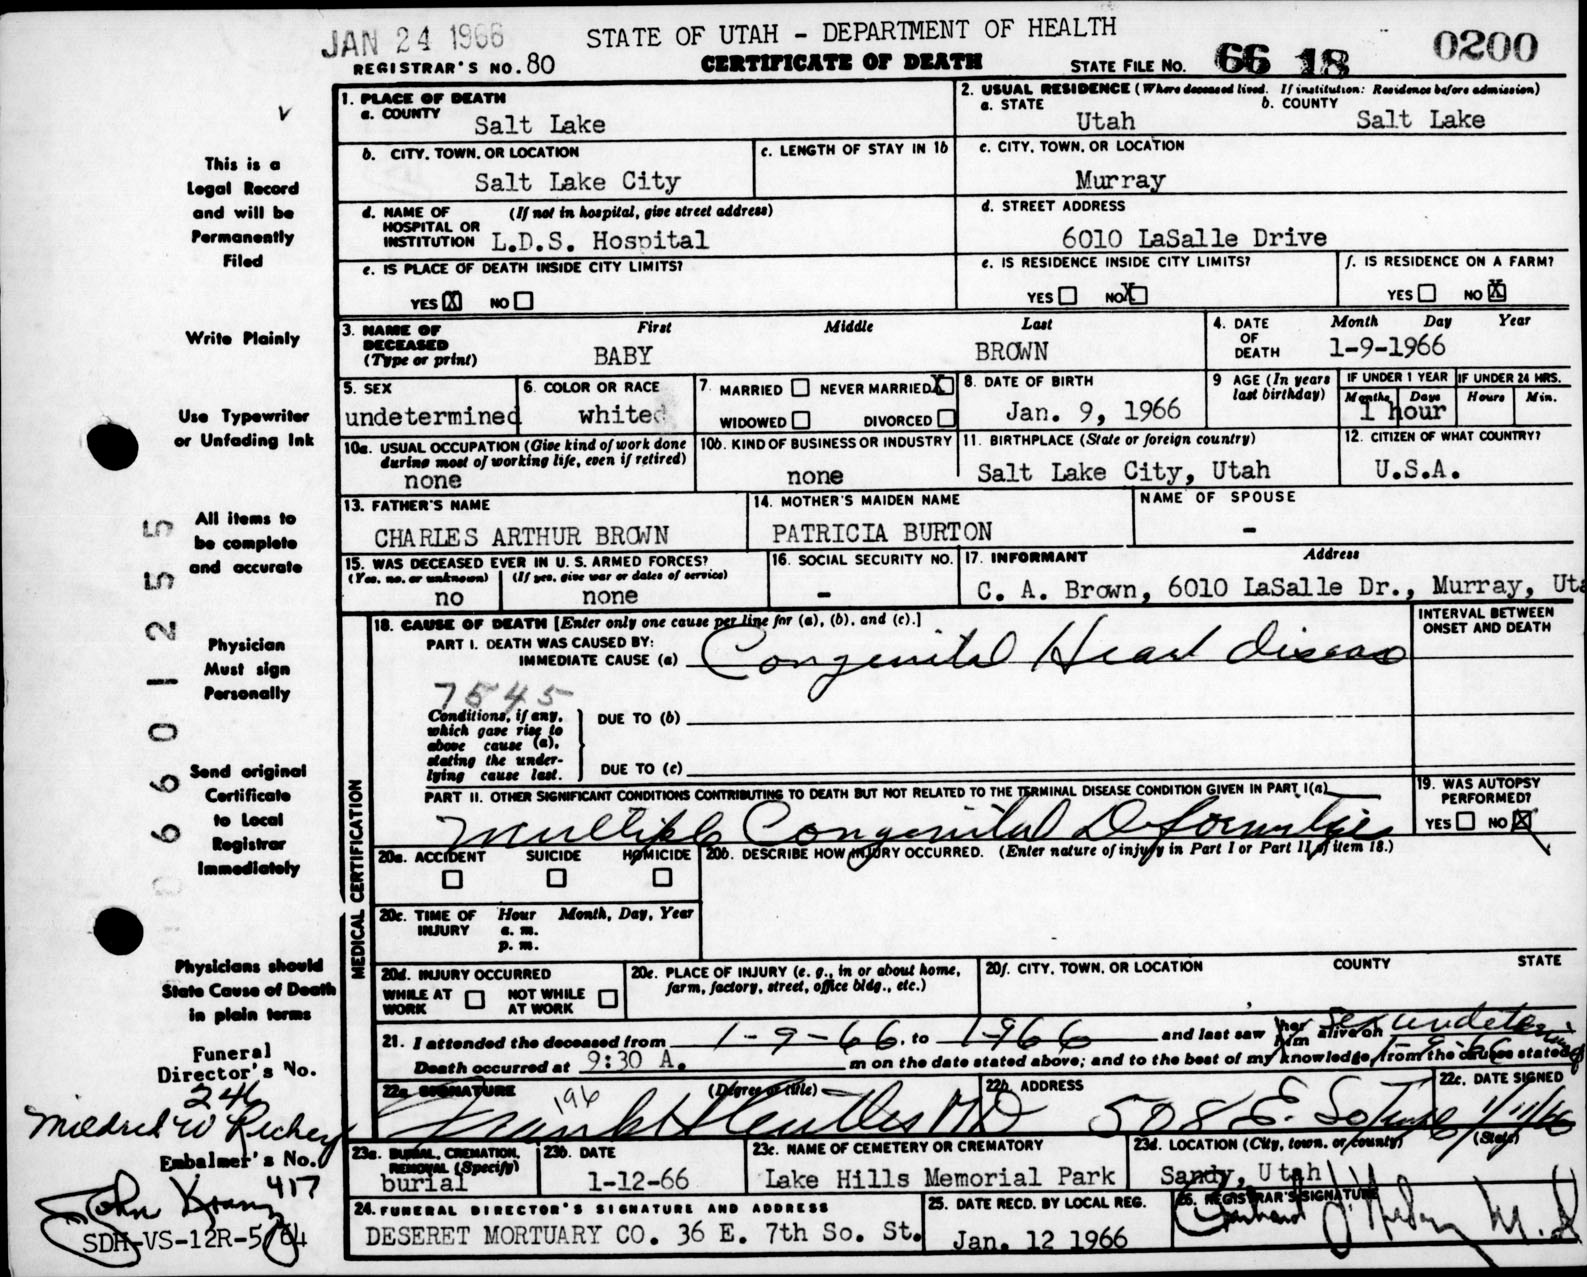 JAN 24 1966
STATE OF UTAH - DEPARTMENT OF HEALTH
REGISTRAR'S NO. 80
CERTIFICATE OF DEATH
STATE FILE NO. 66 18 0200
1. PLACE OF DEATH
a. COUNTY
Salt Lake
2. USUAL RESIDENCE (Where deceased lived. If institution: Residence before admission)
a. STATE
Utah
b. COUNTY
Salt Lake
b. CITY, TOWN, OR LOCATION
Salt Lake City
c. LENGTH OF STAY IN 1b
c. CITY, TOWN, OR LOCATION
Murray
d. NAME OF HOSPITAL OR INSTITUTION
(If not in hospital, give street address)
L.D.S. Hospital
d. STREET ADDRESS
6010 LaSalle Drive
e. IS PLACE OF DEATH INSIDE CITY LIMITS?
YES X NO
e. IS RESIDENCE INSIDE CITY LIMITS?
YES NO X
f. IS RESIDENCE ON A FARM?
YES NO X
3. NAME OF DECEASED
(Type or print)
First
Middle
Last
BABY BROWN
4. DATE OF DEATH
Month Day Year
1-9-1966
5. SEX
undetermined
6. COLOR OR RACE
white
7. MARRIED NEVER MARRIED X
WIDOWED DIVORCED
8. DATE OF BIRTH
Jan. 9, 1966
9 AGE (In years last birthday)
IF UNDER 1 YEAR
Months Days
IF UNDER 24 HRS.
Hours Min.
1 hour
10a. USUAL OCCUPATION (Give kind of work done
during most of working life, even if retired)
none
10b. KIND OF BUSINESS OR INDUSTRY
none
11. BIRTHPLACE (State or foreign country)
Salt Lake City, Utah
12. CITIZEN OF WHAT COUNTRY?
U.S.A.
13. FATHER'S NAME
CHARLES ARTHUR BROWN
14. MOTHER'S MAIDEN NAME
PATRICIA BURTON
NAME OF SPOUSE
-
15. WAS DECEASED EVER IN U. S. ARMED FORCES?
(Yes, no, or unknown)
(If yes, give war or dates of service)
no
none
16. SOCIAL SECURITY NO.
-
17. INFORMANT
Address
C. A. Brown, 6010 LaSalle Dr., Murray, Uta
18. CAUSE OF DEATH [Enter only one cause per line for (a), (b), and (c).]
PART I. DEATH WAS CAUSED BY:
IMMEDIATE CAUSE (a) Congenital Heart disease
INTERVAL BETWEEN ONSET AND DEATH
7545
Conditions, if any,
which gave rise to
above cause (a),
stating the under-
lying cause last.
DUE TO (b)
DUE TO (c)
PART II. OTHER SIGNIFICANT CONDITIONS CONTRIBUTING TO DEATH BUT NOT RELATED TO THE TERMINAL DISEASE CONDITION GIVEN IN PART I(a)
Multiple Congenital Deformities
19. WAS AUTOPSY PERFORMED?
YES NO X
20a. ACCIDENT SUICIDE HOMICIDE
20b. DESCRIBE HOW INJURY OCCURRED. (Enter nature of injury in Part I or Part II of item 18.)
20c. TIME OF INJURY
Hour Month, Day, Year
a. m.
p. m.
20d. INJURY OCCURRED
WHILE AT WORK NOT WHILE AT WORK
20e. PLACE OF INJURY (e. g., in or about home,
farm, factory, street, office bldg., etc.)
20f. CITY, TOWN, OR LOCATION COUNTY STATE
21. I attended the deceased from 1-9-66, to 1-966 and last saw her him alive on 1-9-66
sex undetermined
Death occurred at 9:30 A. m on the date stated above; and to the best of my knowledge, from the causes stated
22a. SIGNATURE
(Degree or title)
196
MD
22b. ADDRESS
508 E. So Temple
22c. DATE SIGNED
1/11/66
23a. BURIAL, CREMATION, REMOVAL (Specify)
burial
23b. DATE
1-12-66
23c. NAME OF CEMETERY OR CREMATORY
Lake Hills Memorial Park
23d. LOCATION (City, town, or county) (State)
Sandy, Utah
24. FUNERAL DIRECTOR'S SIGNATURE AND ADDRESS
DESERET MORTUARY CO. 36 E. 7th So. St.
25. DATE RECD. BY LOCAL REG.
Jan. 12 1966
26. REGISTRAR'S SIGNATURE
MEDICAL CERTIFICATION
This is a
Legal Record
and will be
Permanently
Filed
Write Plainly
Use Typewriter
or Unfading Ink
All items to
be complete
and accurate
Physician
Must sign
Personally
Send original
Certificate
to Local
Registrar
Immediately
Physicians should
State Cause of Death
in plain terms
Funeral
Director's No.
246
Mildred W Richey
Embalmer's No.
417
John
SDH-VS-12R-5/64
0660012 55